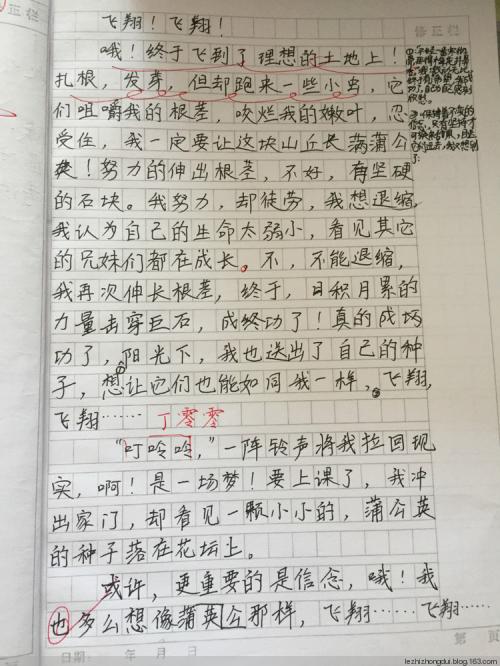 正栏
修正栏
飞翔！飞翔！
哦！终于飞到了理想的土地上！
扎根，发芽，但却跑来一些小虫，它
们咀嚼我的根茎，咬烂我的嫩叶，忍
受住，我一定要让这块山丘长满蒲公
英！努力的伸出根茎，不好，有坚硬
的石块。我努力，却徒劳，我想退缩，
我认为自己的生命太弱小，看见其它
的兄妹们都在成长。不，不能退缩，
我再次伸长根茎，终于，日积月累的
力量击穿巨石，成终功了！真的成
功了，阳光下，我也送出了自己的种
子，想让它们也能如同我一样，飞翔，
飞翔……丁零零
“叮呤呤，”一阵铃声将我拉回现
实，啊！是一场梦！要上课了，我冲
出家门，却看见一颗小小的，蒲公英
的种子落在花坛上。
或许，更重要的是信念，哦！我
也多么想像蒲英公那样，飞翔……飞翔……
日期： 年 月 日
第 页
lezhizhongdui.blog.163.com